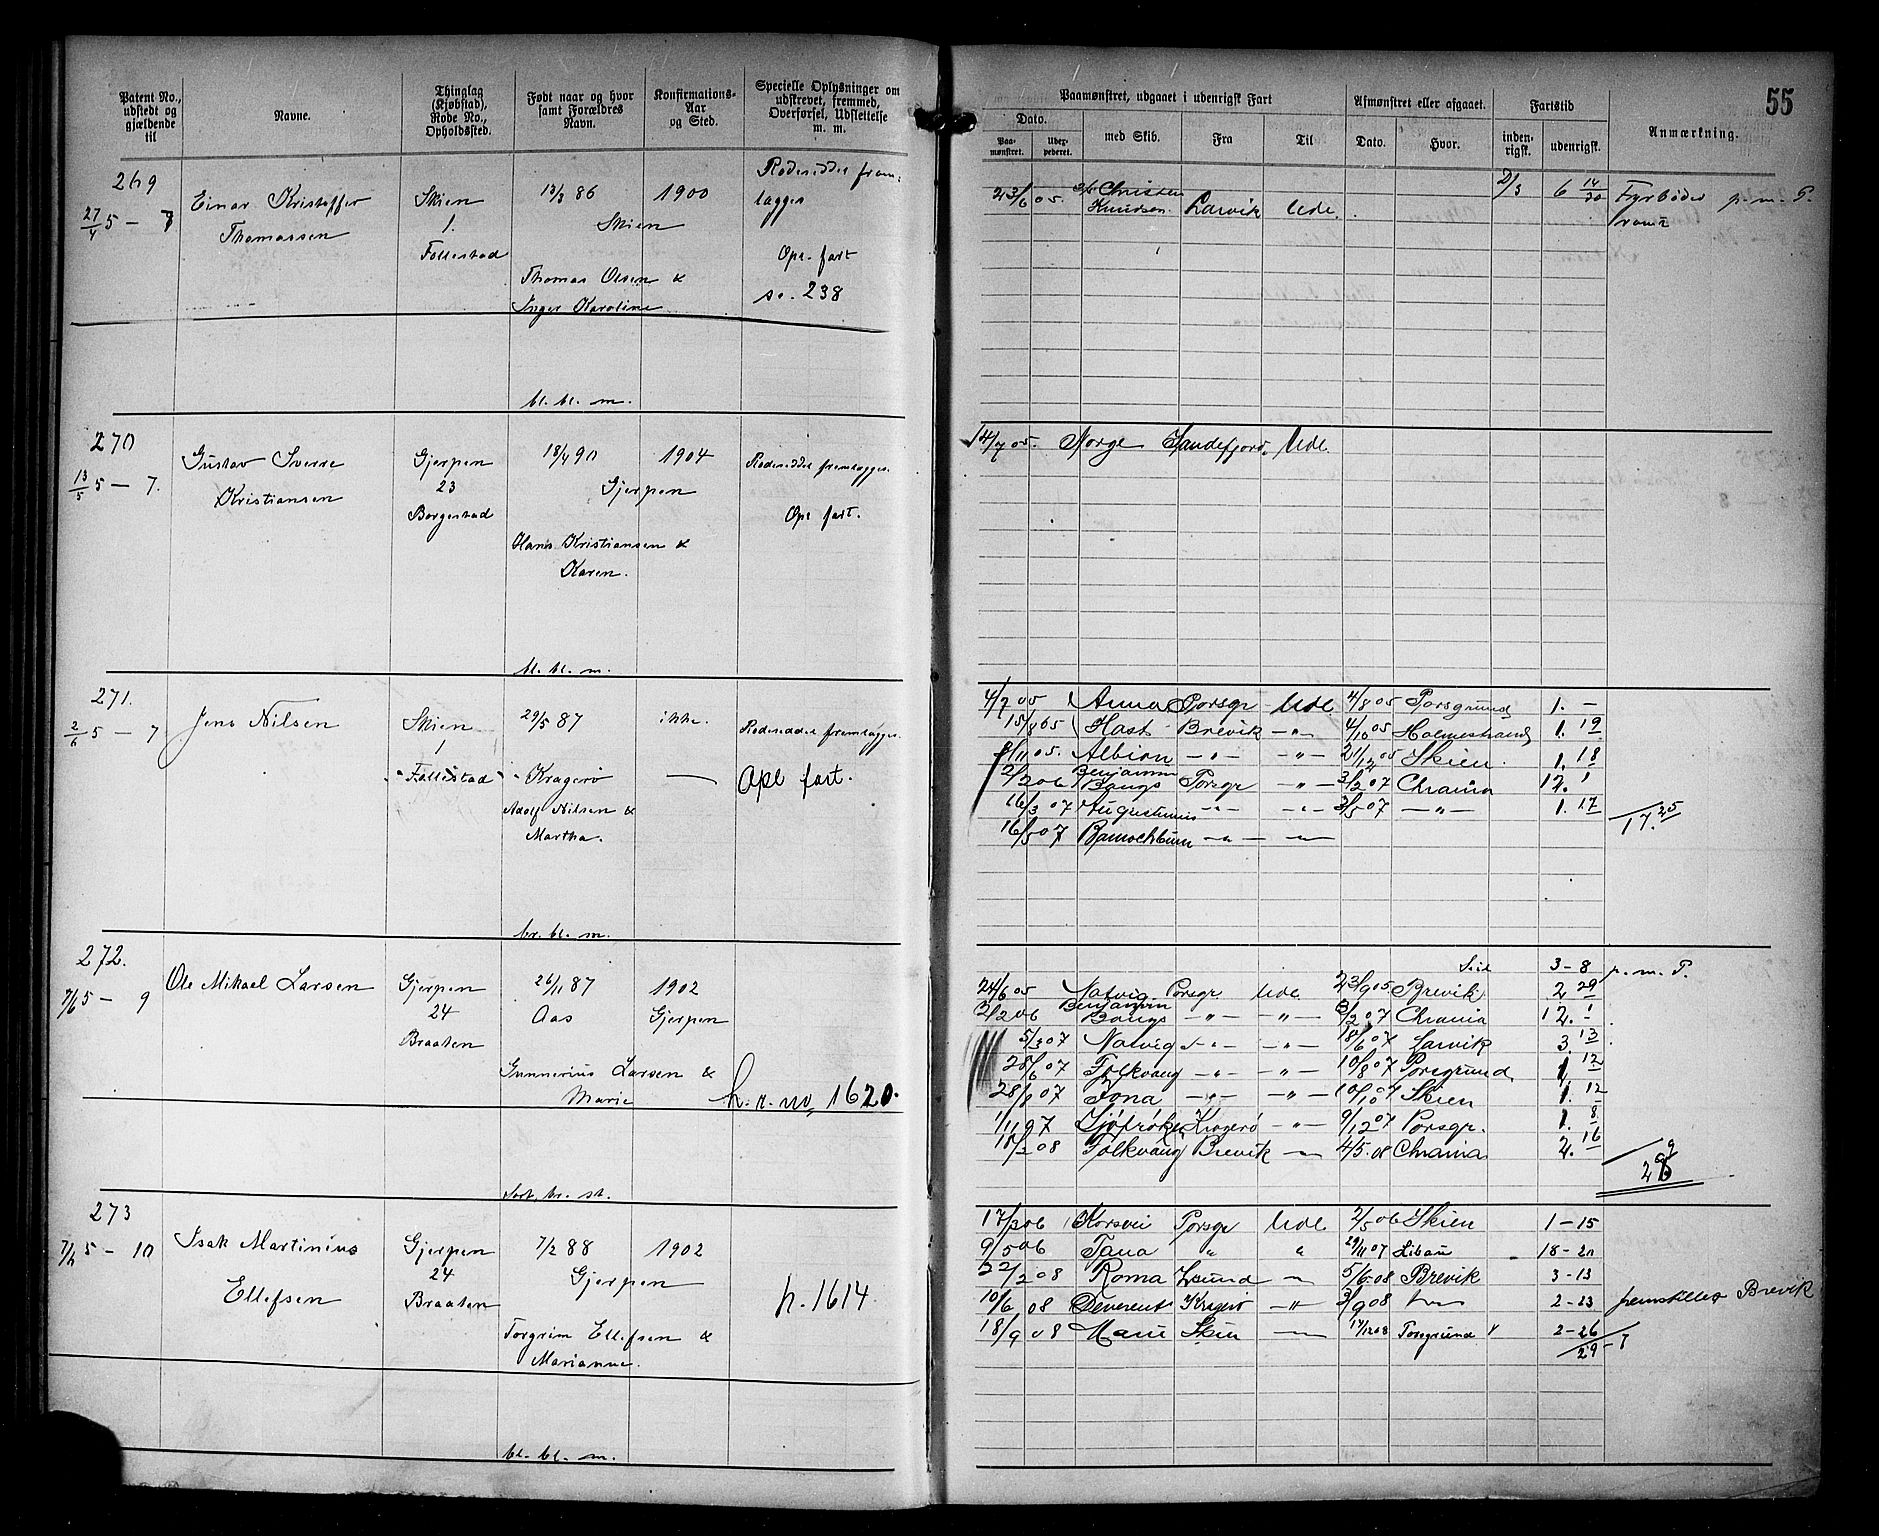 55
Patent No., udstedt og gjældende til
Navne.
Thinglag (Kjøbstad), Rode No., Opholdssted.
Født naar og hvor samt Forældres Navn.
Konfirmations-Aar og Sted.
Specielle Oplysninger om udskrevet, fremmed, Overførsel, Udslettelse m. m.
Paamønstret, udgaaet i udenrigsk Fart
Dato.
Paa-mønstret.
med Skib.
Fra
Til
Afmønstret eller afgaaet.
Dato.
Hvor.
Fartstid
inden-rigsk.
udenrigsk.
Anmærkning.
269
27/4 5 — 7
Einar Kristoffer
Thomassen
Skien
1.
Follestad
13/3 86
1900
Skien
Thomas Olsen &
Inger Karoline
Rodeseddel frem-
lagges
Opt. fart
so. 238
bl. bl. m.
23/6 05. Christen Knudsen. Larvik Udl. 2/3 6 14/30 Fyrbøder p. m. P.
270
13/5 5 — 7.
Gustav Sverre
Kristiansen
Gjerpen
23
Borgestad
18/4 90
1904
Gjerpen
Hans Kristiansen &
Karen.
Rodeseddel fremlagges.
Opt fart.
bl. bl. m.
14/7 05. Norge Sandefjord. Udl.
271.
2/6 5 — 7
Jens Nilsen
Skien
1
Follestad
29/5 87
ikke.
Kragerø
Adolf Nilsen &
Martha.
Rodeseddel fremlagges.
Opt fart.
br. bl. m.
4/7 05 Anna Porsgr Udl 4/8 05 Porsgrund 1. —
15/8 05 Hast Brevik —„— 4/10 05 Holmestrand 1. 19
1/11 05. Albion —„— —„— 21/12 05 Skien. 1. 18
2/2 06 Benjamin Bangs Porsgr —„— 3/2 07 Chrania 12. 1
16/3 07 Augustinus —„— —„— 3/5 07 —„— 1. 17
17. 25
16/5 07 —„— —„—
272.
7/6 5 — 9
Ole Mikael Larsen
Gjerpen
24
Braaten
26/11 87
Aas
1902
Gjerpen
Gunnerius Larsen &
Marie
h. r. no, 1620.
Sort, br. st.
3 – 8 p. m. P.
24/6 05 Natvig Porsgr Udl. 23/9 05 Brevik 2 29
2/2 06 Benjamin Bangs —„— —„— 3/2 07 Chrania 12. 1
5/3 07 Natvig —„— —„— 18/6 07 Larvik 3. 13
28/6 07 Folkvang —„— —„— 10/8 07 Porsgrund 1. 12
28/8 07 Fona —„— —„— 10/10 07 Skien 1. 12
1/11 07 Kragerø —„— 9/12 07 Porsgr. 1. 8
18/2 08 Folkvang Brevik —„— 4/5 08 Chrania 2. 16
273
7/6 5 — 10
Isak Martinius
Ellefsen
Gjerpen
24
Braaten
7/2 88
1902
Gjerpen
Torgrim Ellefsen &
Marianne.
h. 1614
bl. bl. m.
17/2 06 Korsvei Porsgr Udl 2/5 06 Skien 1 – 15
9/5 06 Tana „ „ 29/11 07 Libau 18 – 20
22/2 08 Roma —„— 5/6 08 Brevik 3 – 13
10/6 08 Deveront Kragerø —„— 3/9 08 2 – 23 fremstilles Brevik
18/9 08 Marie Skien —„— 17/12 08 Porsgrund 2 – 26
29 – 7